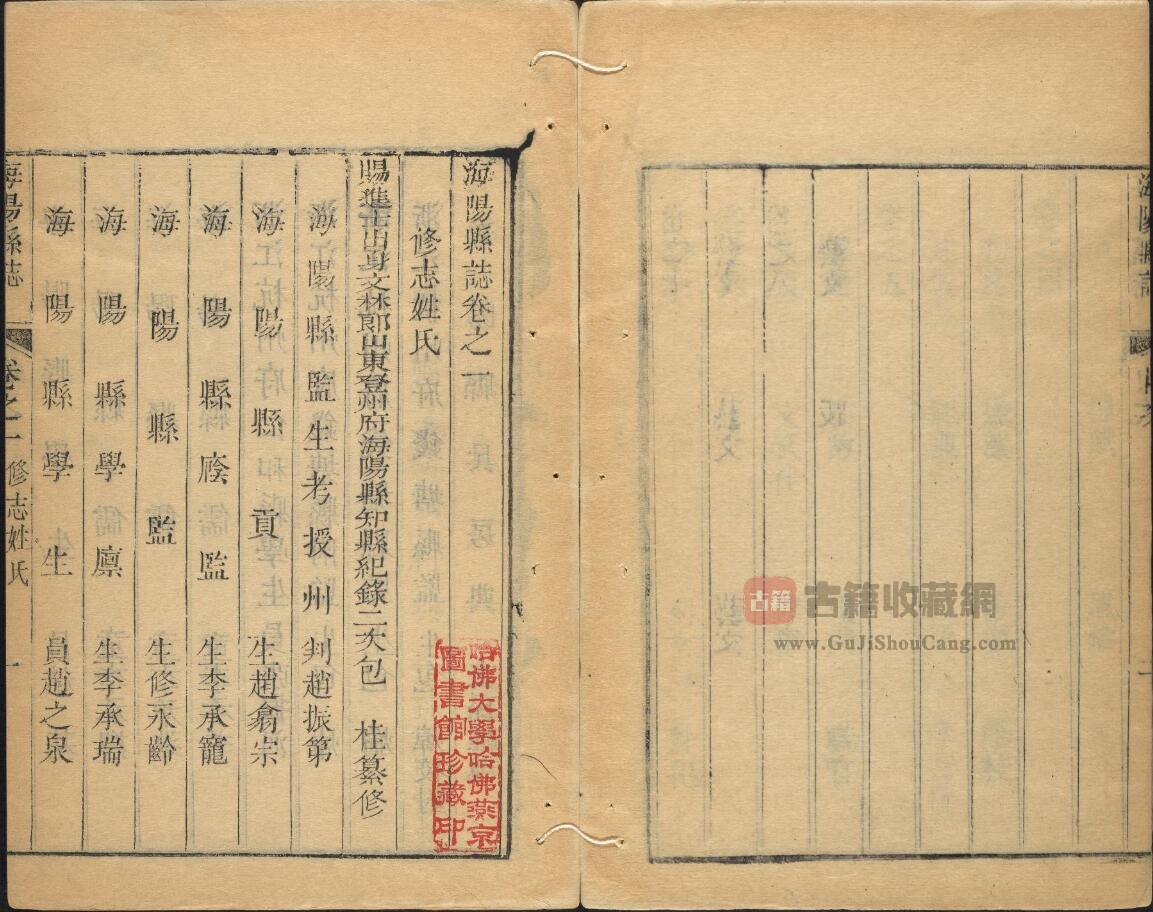 海陽縣誌卷之一
修志姓氏
賜進士出身文林郎山東登州府海陽縣知縣紀錄二次包 桂纂修
海陽縣監生考授州判趙振第
海陽縣貢生趙翕宗
海陽縣廕監生李承寵
海陽縣監生修永齡
海陽縣學儒廪生李承瑞
海陽縣學生員趙之泉
海陽縣誌 卷之一 修志姓氏 一
哈佛大學哈佛燕京
圖書館珍藏印
古籍
古籍收藏網
www.GuJiShouCang.com